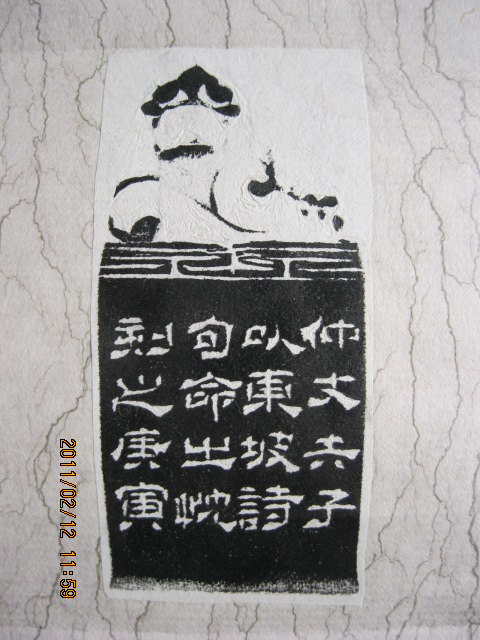 仲丈夫子
以東坡詩
句命出
刻之庚寅
2011/02/12 11:59